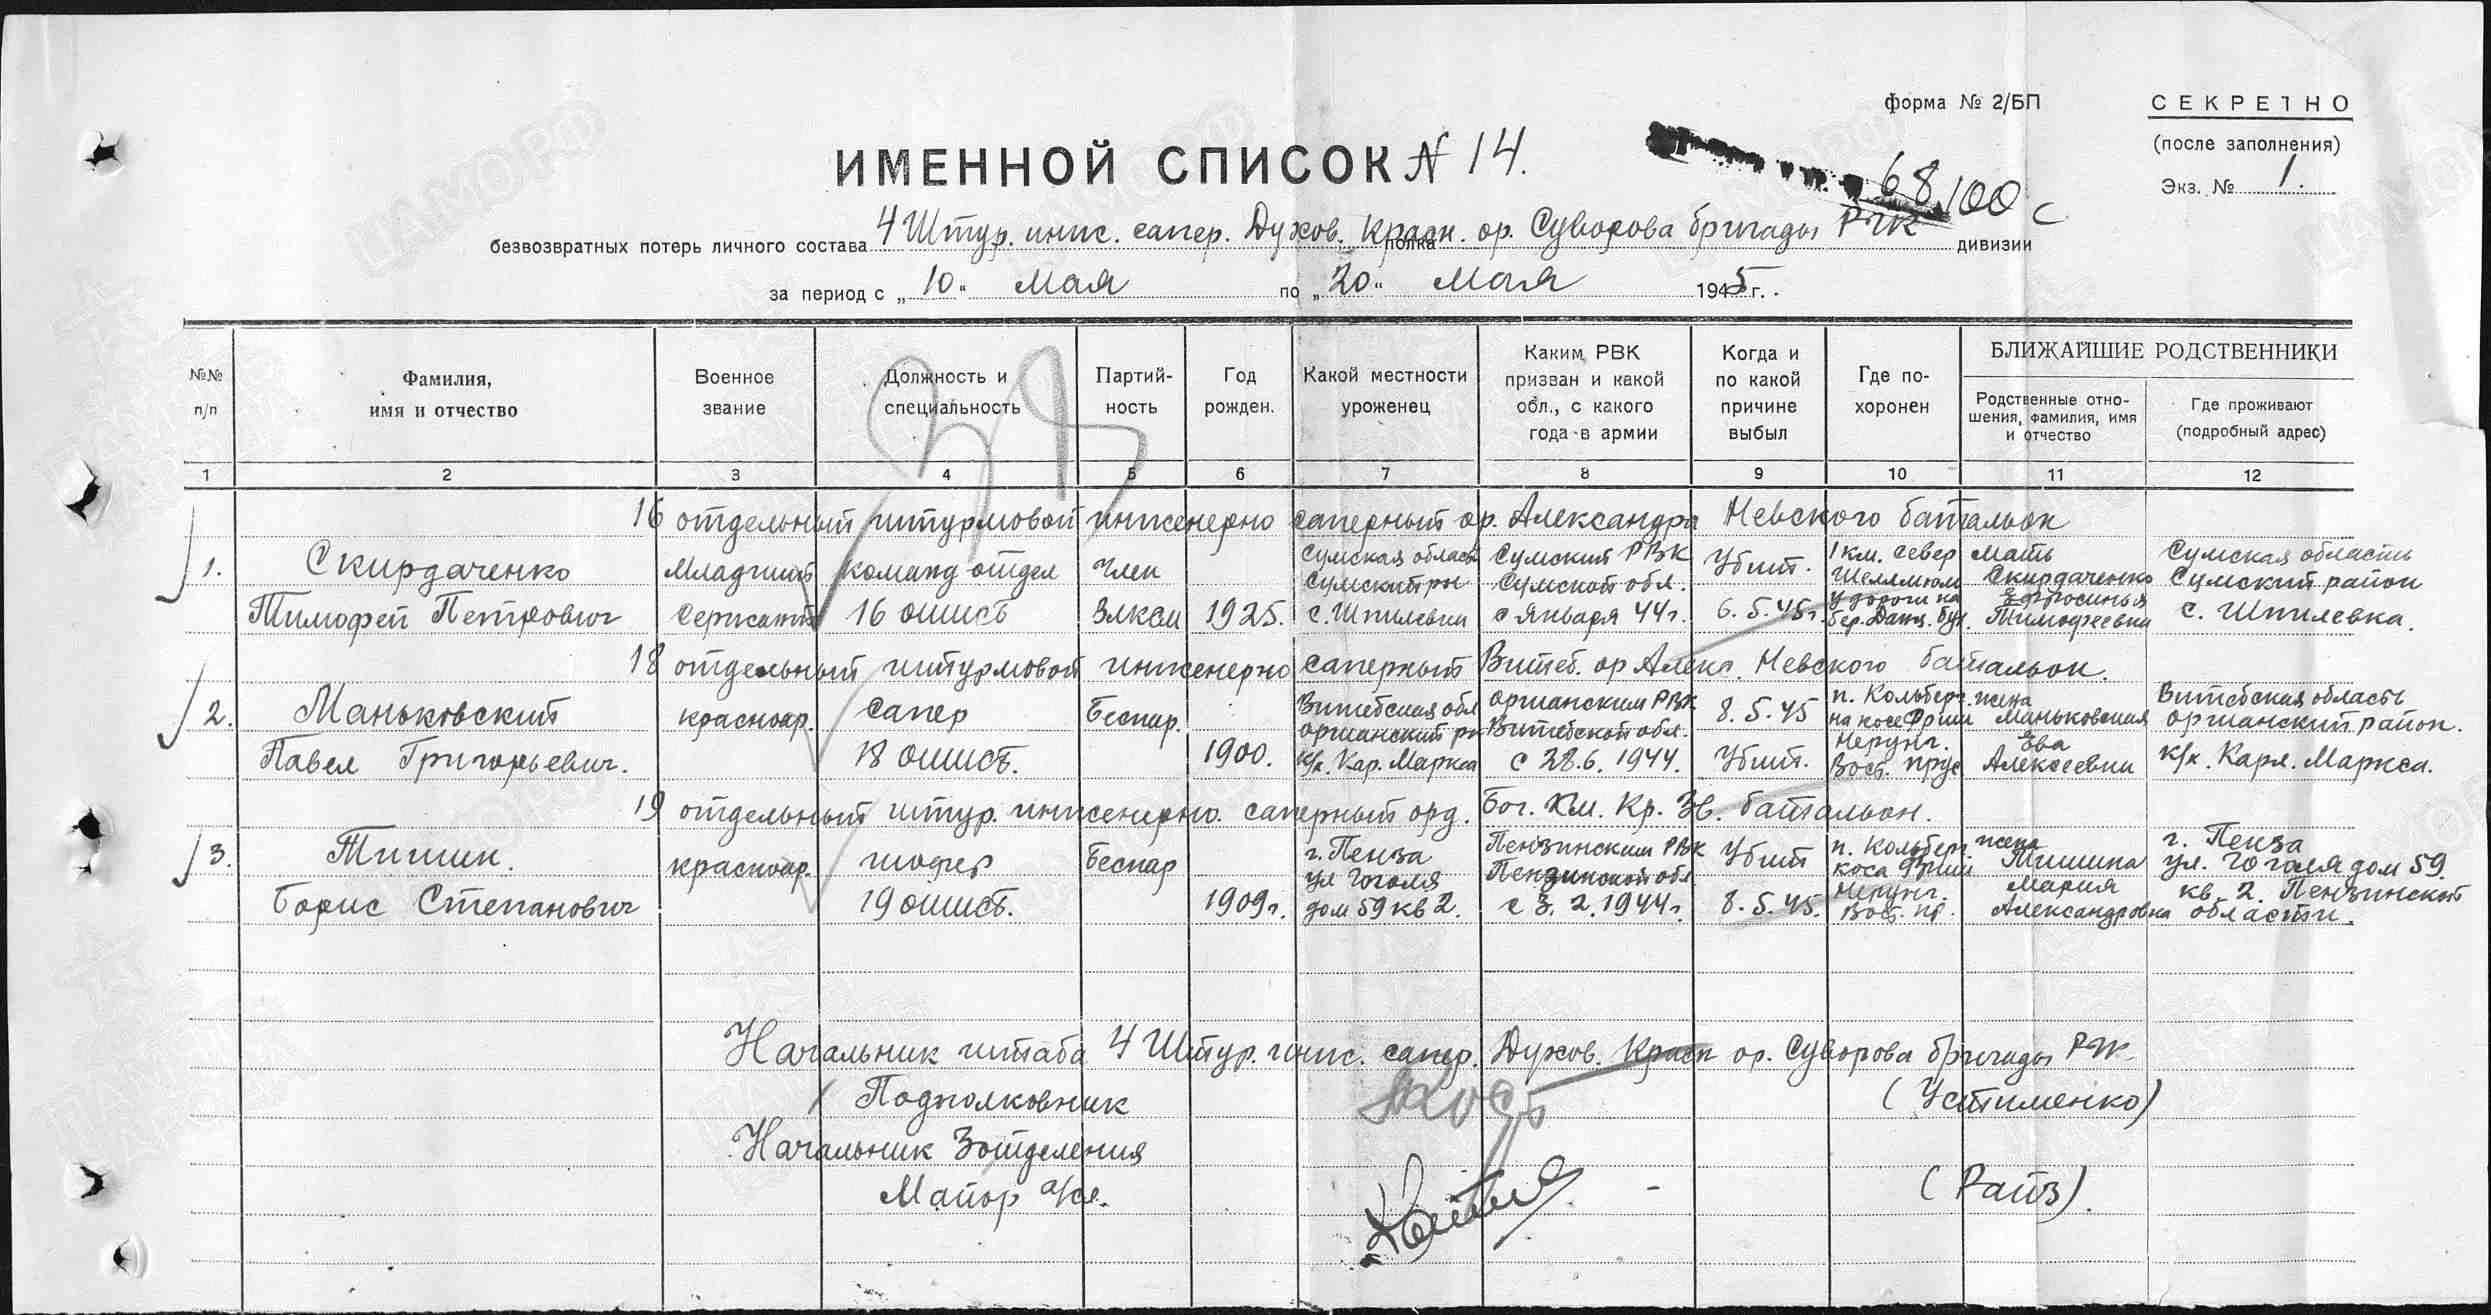 форма № 2/БП
СЕКРЕТНО
(после заполнения)
Экз. № 1.
ИМЕННОЙ СПИСОК N 14.
68100 с
безвозвратных потерь личного состава 4 Штур. инж. сапер. Духов. Красн. ор. Суворова бригады РГК полка дивизии
за период с „10“ Мая по „20“ Мая 1945 г.
№№ п/п
Фамилия, имя и отчество
Военное звание
Должность и специальность
Партийность
Год рожден.
Какой местности уроженец
Каким РВК призван и какой обл., с какого года в армии
Когда и по какой причине выбыл
Где похоронен
БЛИЖАЙШИЕ РОДСТВЕННИКИ
Родственные отношения, фамилия, имя и отчество
Где проживают (подробный адрес)
1 2 3 4 5 6 7 8 9 10 11 12
16 отдельный штурмовой инженерно саперный ор. Александра Невского батальон
1. Скирдаченко Младший команд отдел член Сумская область Сумский РВК Убит. 1 км. север мать Сумская область
Сумский рн Сумской обл. Скирдаченко Сумский район
Тимофей Петрович Сержант 16 ошисб ВЛКСМ 1925. с. Шпилевки с Января 44 г. 6.5.45 г. у дороги на бер. Данц. бух. Тимофеевна с. Шпилевка.
18 отдельный штурмовой инженерно саперный Витеб. ор Алекс. Невского батальон.
2. Маньковский красноар. сапер Беспар. Витебская обл Оршанским РВК 8.5.45 п. Кольберг жена Витебская область
оршанский рн Витебской обл. на косе Фриш Маньковская оршанский район.
Павел Григорьевич. 18 ошисб. 1900. к/х. Кар. Маркса с 28.6.1944. Убит. Нерунг. Вост. Прус Ева Алексеевна к/х. Карл. Маркса.
19 отдельный штур. инженерно. саперный орд. Бог. Хм. Кр. Зв. батальон.
3. Тишин. красноар. шофер Беспар г. Пенза Пензинским РВК Убит п. Кольберг жена г. Пенза
ул Гоголя Пензинской обл коса Фриш Тишина ул. Гоголя дом 59.
Борис Степанович 19 ошисб. 1909 г. дом 59 кв 2. с 3.2.1944 г. 8.5.45. Нерунг. Вост. пр. Мария Александровна кв. 2. Пензинской области.
Начальник штаба 4 Штур. инж. сапер. Духов. Красн ор. Суворова бригады РГК.
Подполковник (Устименко)
Начальник 3 отделения
Майор а/сл. (Райз).